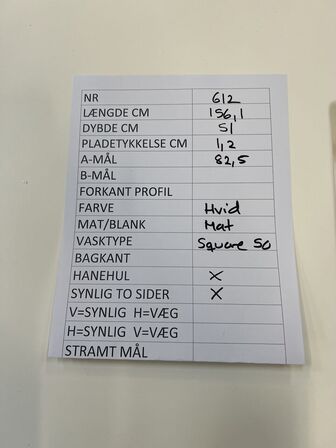 NR 612
LÆNGDE CM 156,1
DYBDE CM 51
PLADETYKKELSE CM 1,2
A-MÅL 82,5
B-MÅL
FORKANT PROFIL
FARVE Hvid
MAT/BLANK Mat
VASKTYPE Square 50
BAGKANT
HANEHUL X
SYNLIG TO SIDER X
V=SYNLIG H=VÆG
H=SYNLIG V=VÆG
STRAMT MÅL